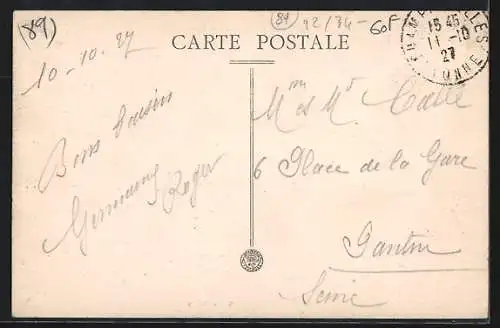 (89)
(89) 92/34 - 60F
CARTE POSTALE
15 45
11 - 10
27
YONNE
10-10-27
Bons baisers
Germaine
Roger
Mme et Mr
6 Place de la Gare
Pantin
Seine